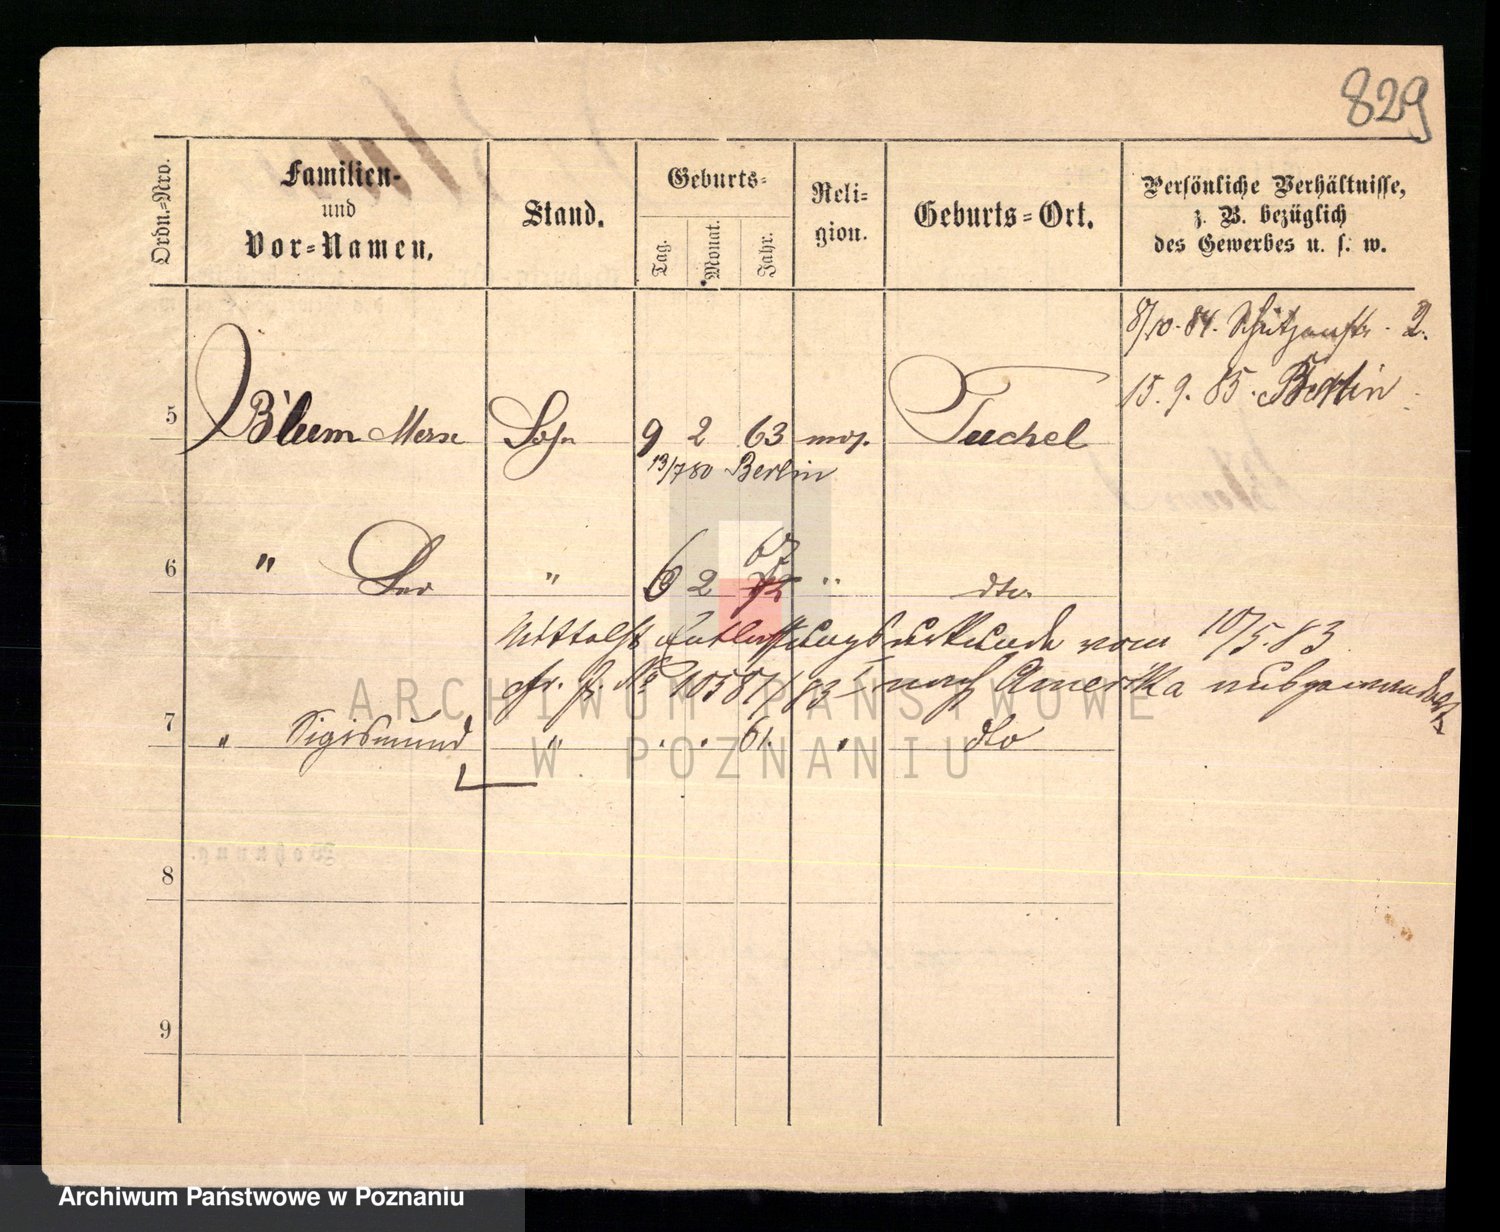 829
Ordn.-Nro.
Familien-
und
Vor-Namen.
Stand.
Geburts-
Tag.
Monat.
Jahr.
Reli-
gion.
Geburts-Ort.
Persönliche Verhältnisse,
z. B. bezüglich
des Gewerbes u. s. w.
8/10. 84. Schützenstr. 2.
15. 9. 85. Berlin
5 Blum Sohn 9 2 63 mos. Tuchel
13/7 80 Berlin
67
6 " Leo " 6 2 " dto.
Mittelst Entlassungsurkunde vom 10/5. 83
cfr. J. No 1058 I/83 nach Amerika ausgewandert
7 " Sigismund " . . 61. " dto
8
9
ARCHIWUM PAŃSTWOWE
W POZNANIU
Archiwum Państwowe w Poznaniu